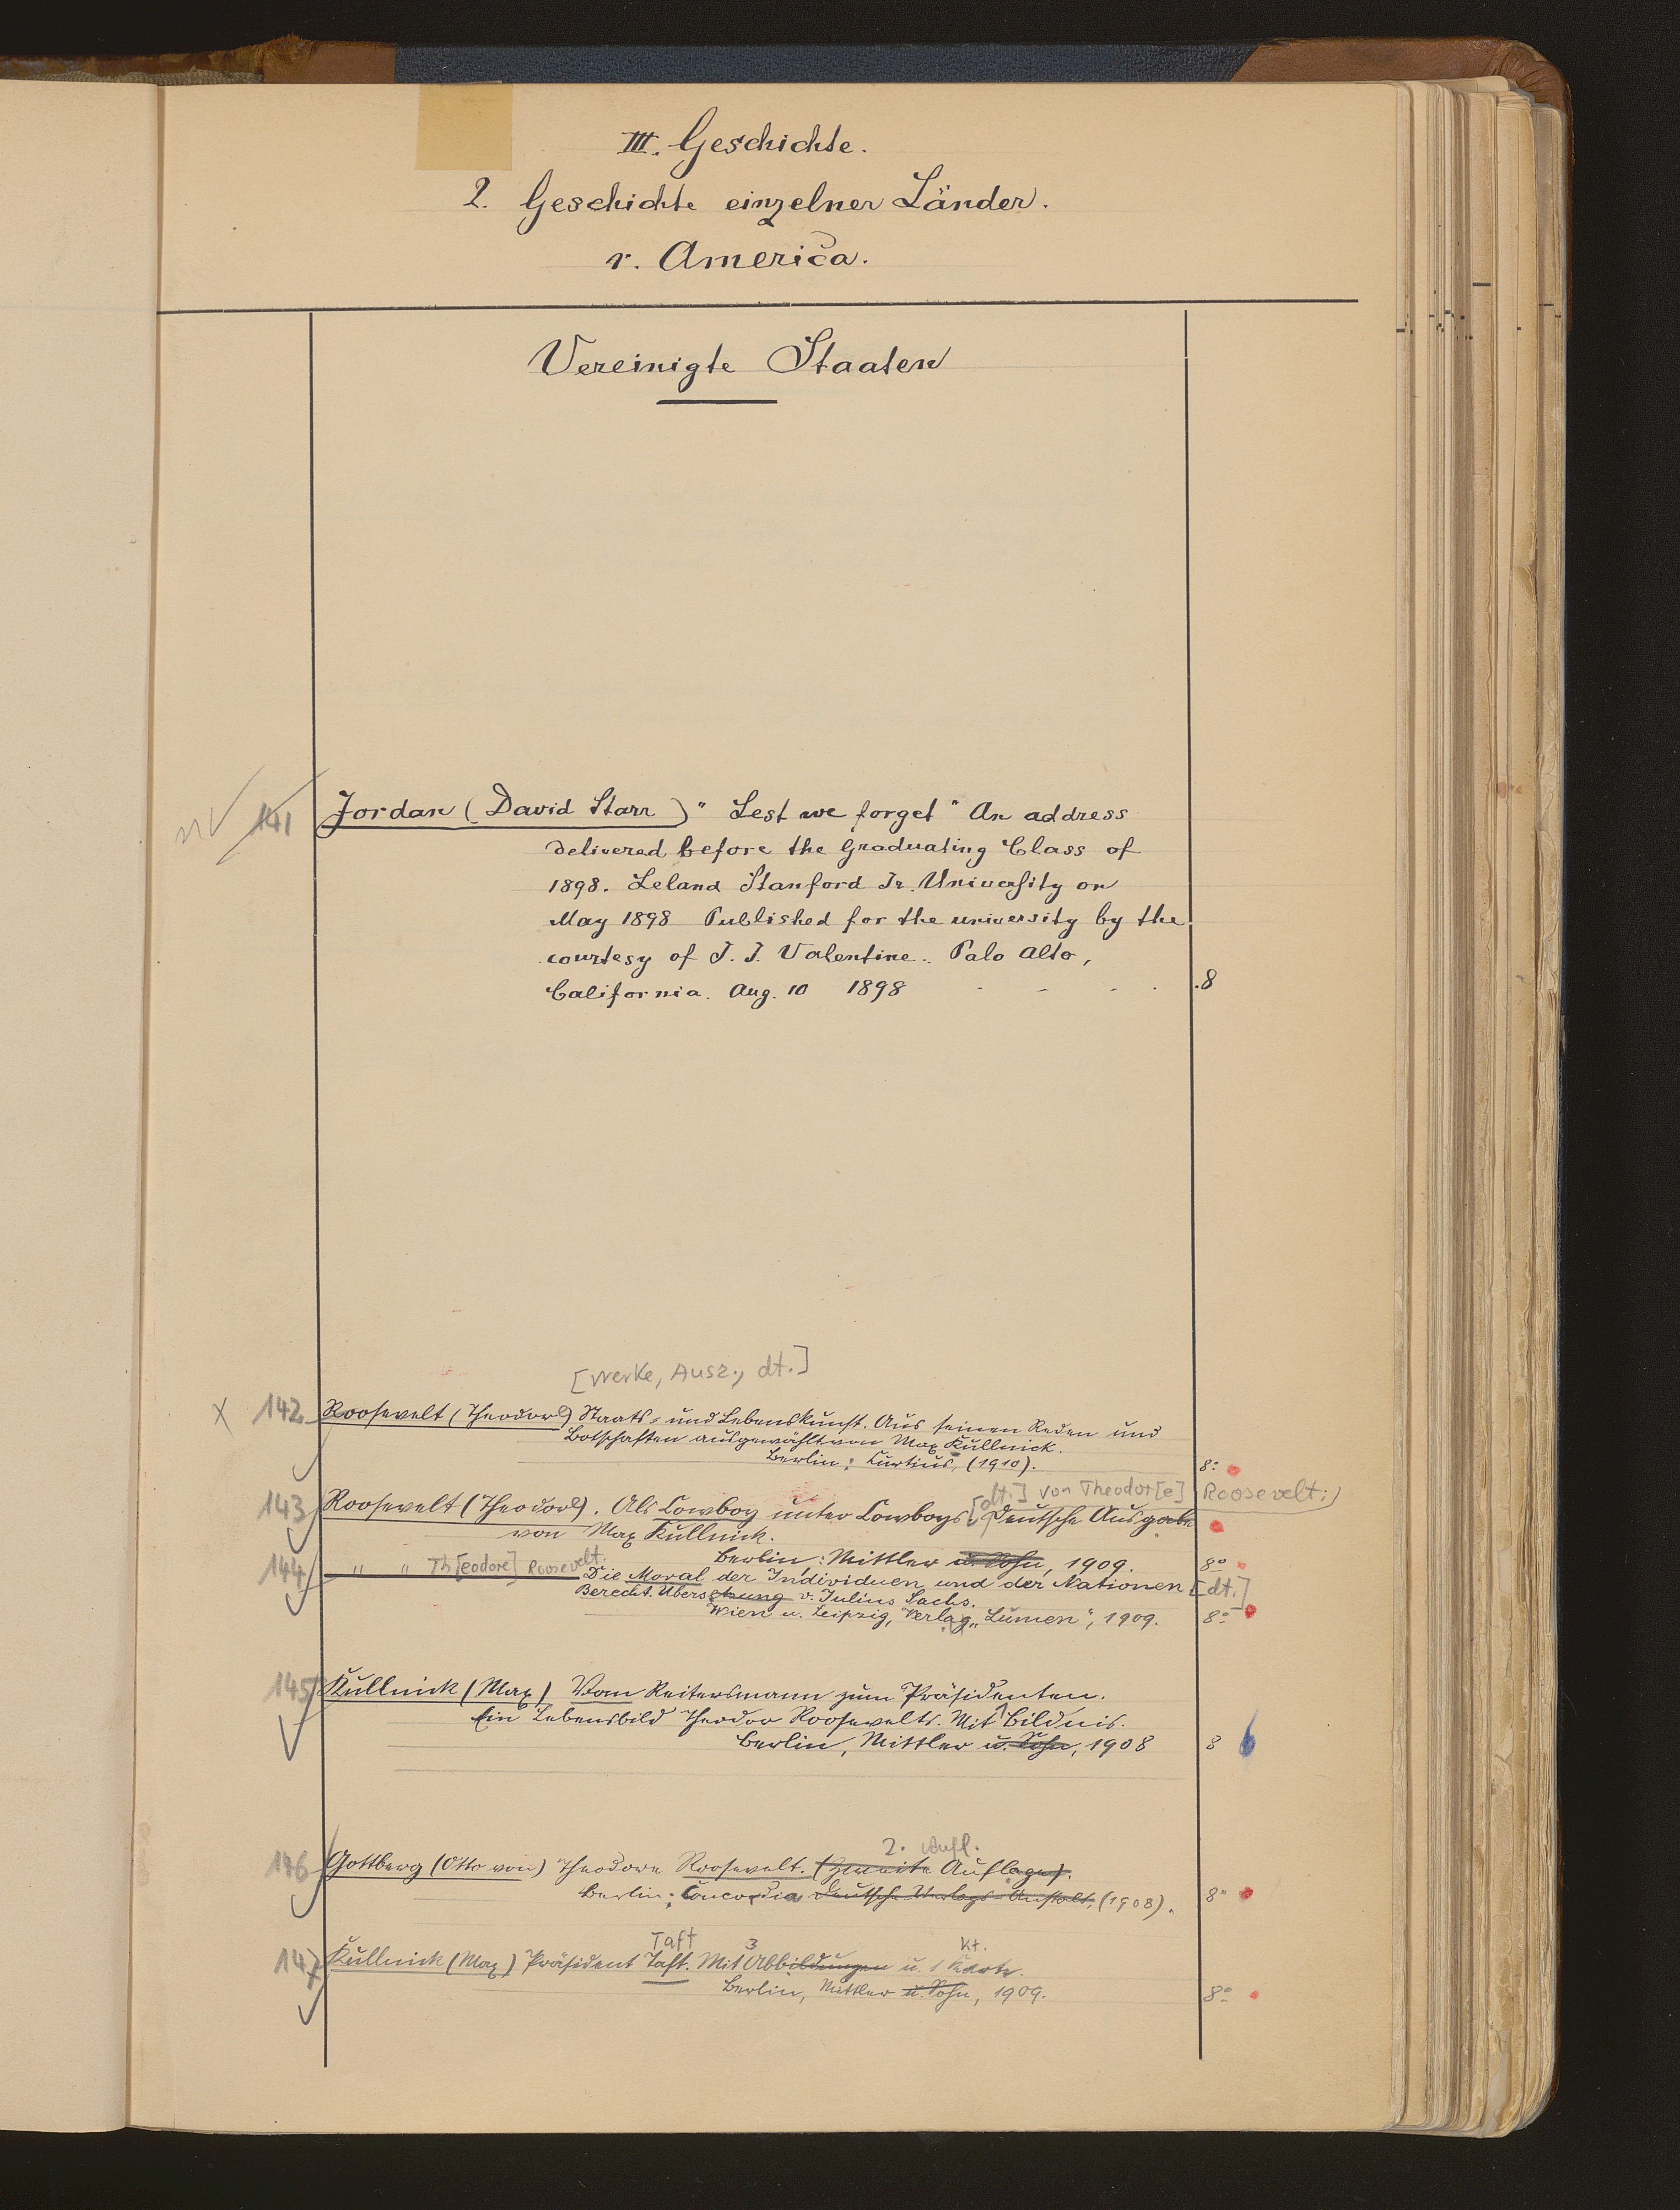 III. Geschichte.
2. Geschichte einzelner Länder.
r. America.
Vereinigte Staaten
141 Jordan (David Starr) "Lest we forget" An address
delivered before the Graduating Class of
1898. Leland Stanford Jr. University on
May 1898 Published for the university by the
courtesy of J. J. Valentine.. Palo Alto,
California. Aug. 10 1898 - - - . .8
[Werke, Ausz., dt.]
x 142 Roosevelt (Theodore) Staats- und Lebenskunst. Aus seinen Reden und
Botschaften ausgewählt von Max Kullnick.
Berlin: Curtius, (1910). 8°
[dt.] von Theodor[e] Roosevelt;
143 Roosevelt (Theodore). Als Cowboy unter Cowboys. Deutsche Ausgabe
von Max Kullnick.
Berlin: Mittler u. Sohn, 1909. 8°
144 " " Th[eodore] Roosevelt. Die Moral der Individuen und der Nationen [dt.]
Berecht. Übersetzung v. Julius Sachs.
Wien u. Leipzig, Verlag "Lumen", 1909. 8°
145 Kullnick (Max) Vom Reitersmann zum Präsidenten.
Ein Lebensbild Theodor Roosevelts. Mit Bildnis.
Berlin, Mittler u. Sohn, 1908 8
2. Aufl.
146 Gottberg (Otto von) Theodore Roosevelt. (Zweite Auflage).
Berlin: Concordia Deutsche Verlags-Anstalt, (1908). 8°
Taft 3 Kt.
147 Kullnick (Max) Präsident Taft. Mit Abbildungen u. 1 Karte.
Berlin, Mittler u. Sohn, 1909. 8°